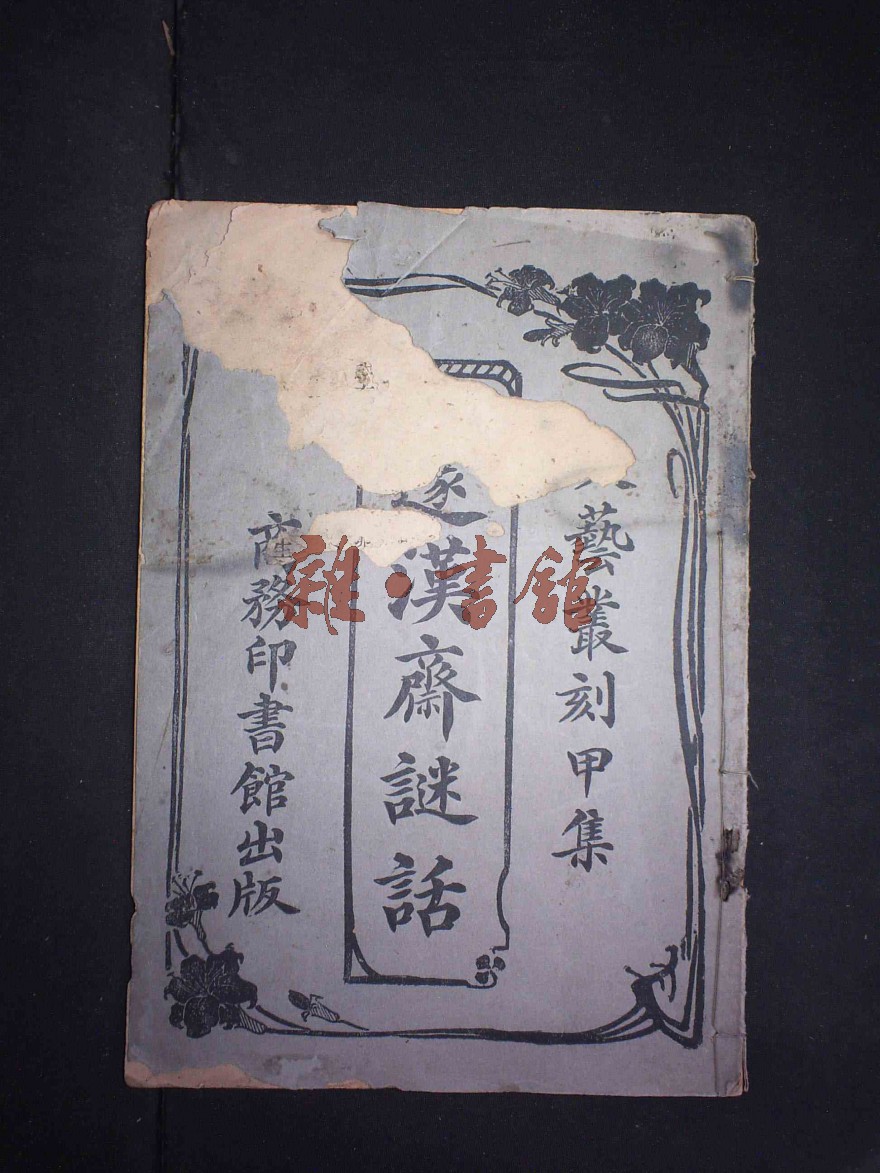 藝叢刻甲集
漢齋謎話
商務印書館出版
雜·書館